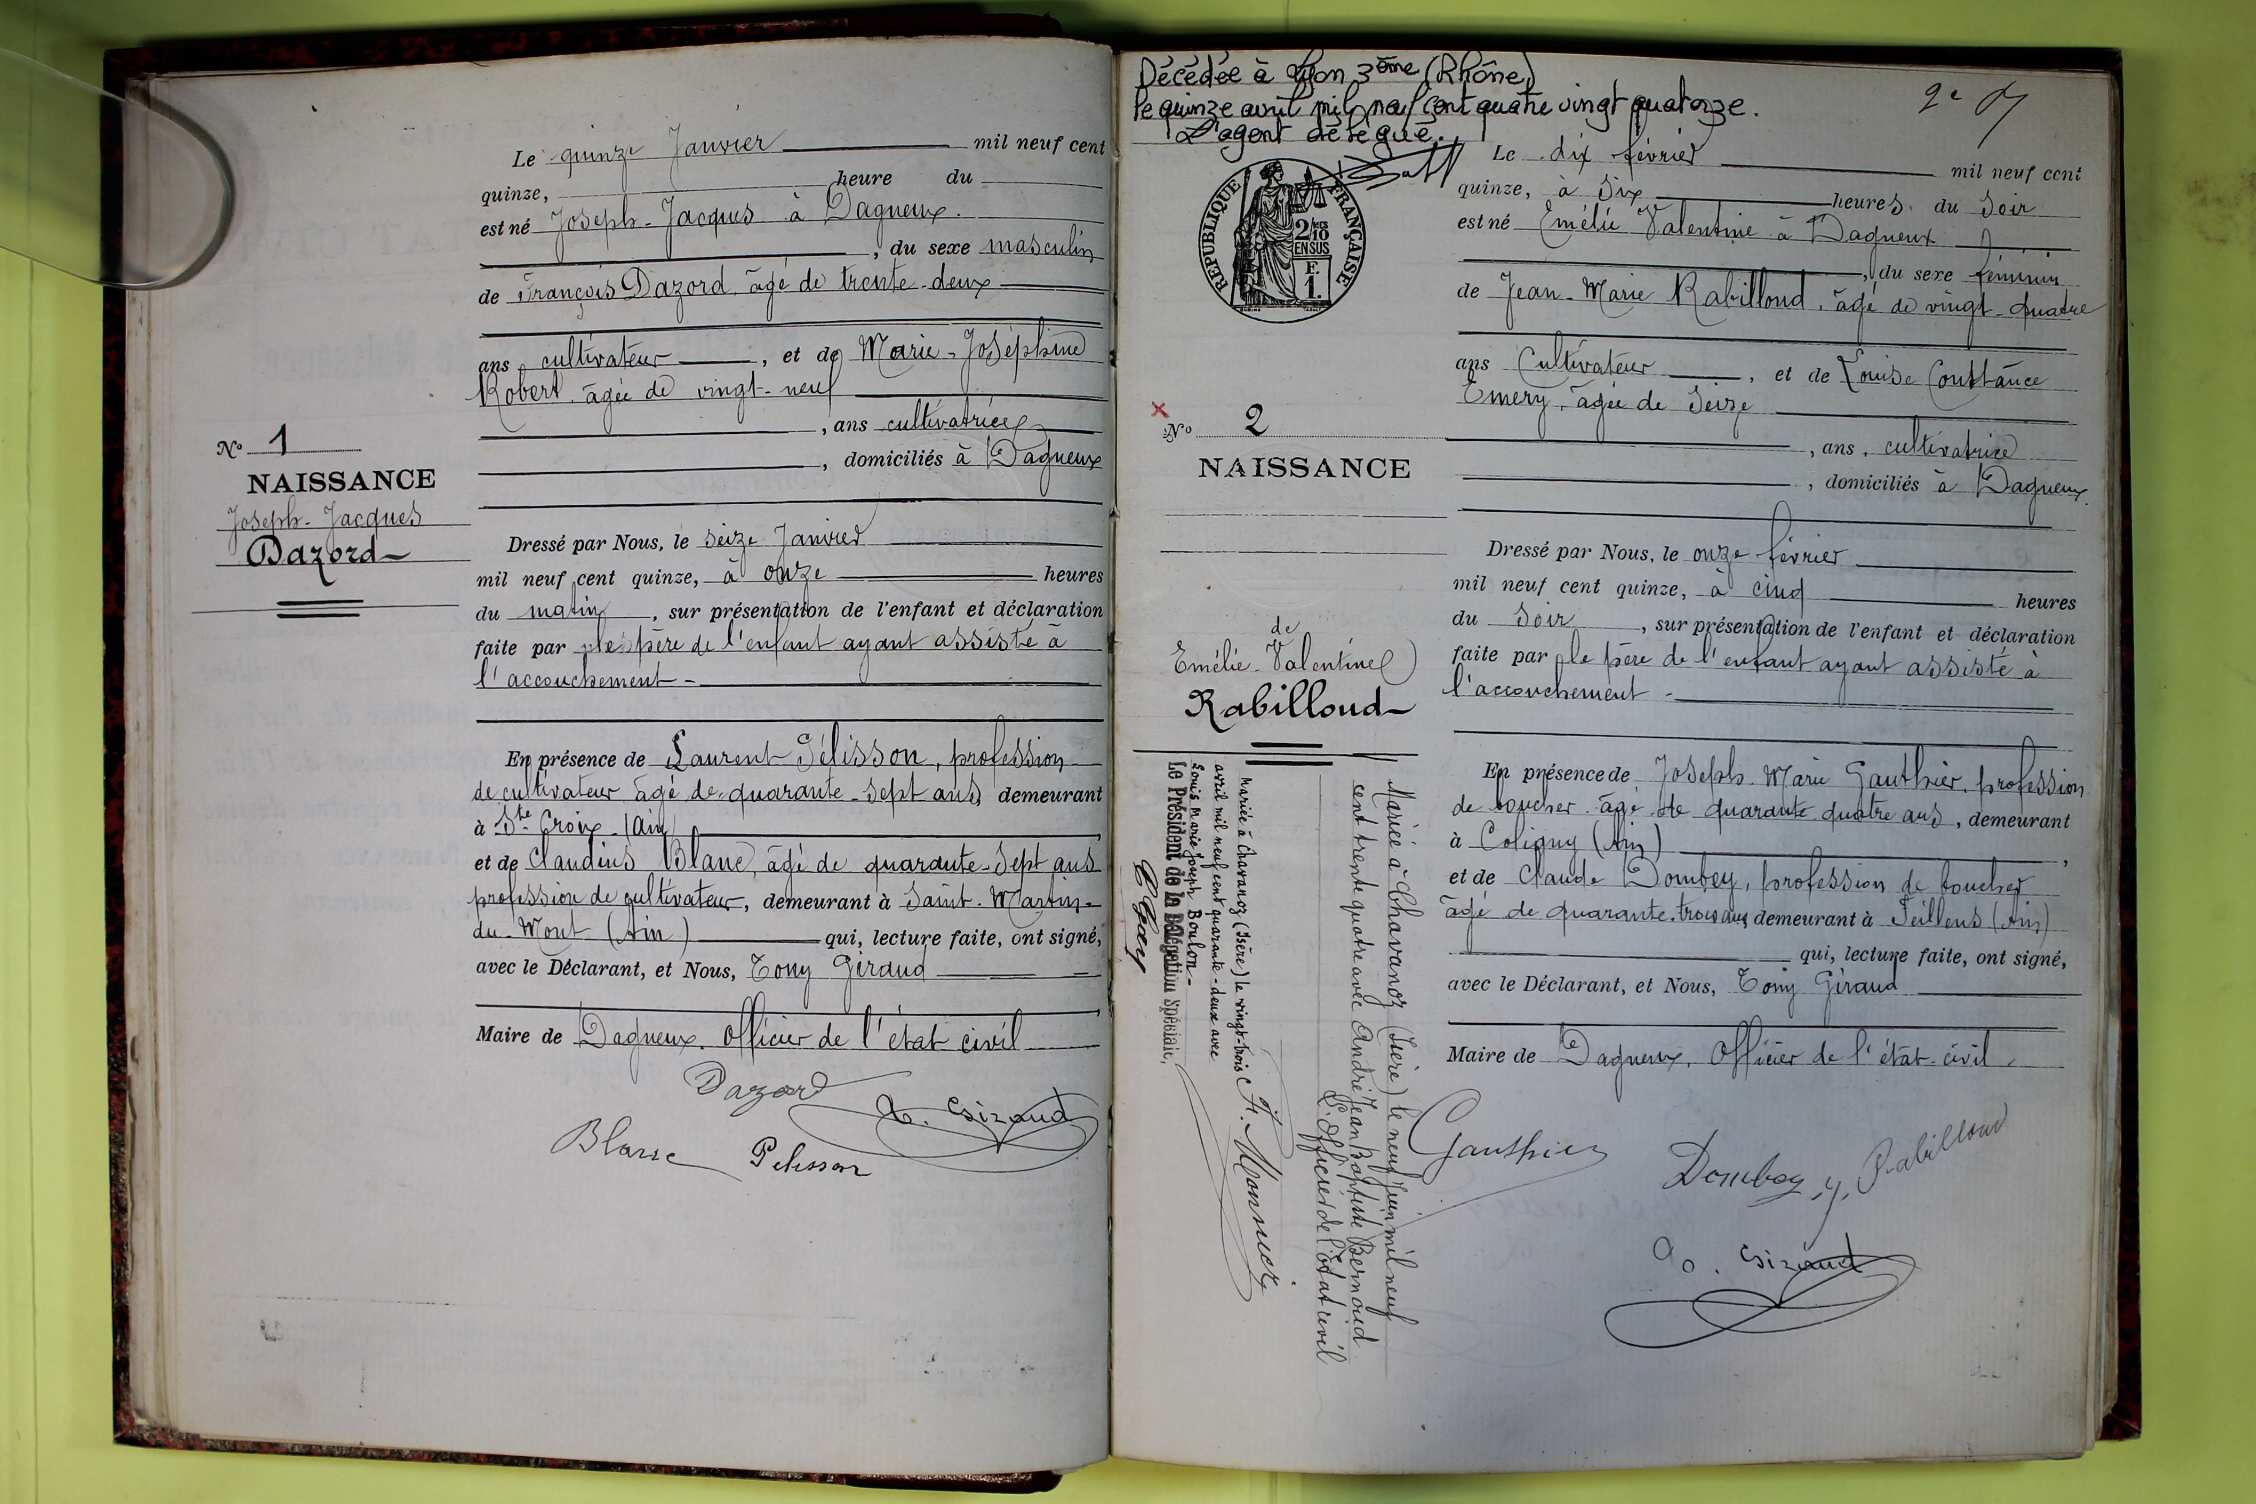 Le quinze Janvier mil neuf cent
quinze, heure du
est né Joseph-Jacques à Dagneux.
, du sexe masculin
de François Dazord, âgé de trente-deux
ans, cultivateur, et de Marie-Joséphine
Robert, âgée de vingt-neuf
, ans cultivatrice
, domiciliés à Dagneux
No 1
NAISSANCE
Joseph-Jacques
Dazord
Dressé par Nous, le seize Janvier
mil neuf cent quinze, à onze heures
du matin, sur présentation de l'enfant et déclaration
faite par le père de l'enfant ayant assisté à
l'accouchement -
En présence de Laurent Pélisson, profession
de cultivateur âgé de quarante-sept ans, demeurant
à Ste Croix (Ain)
et de Claudius Blanc, âgé de quarante-sept ans
profession de cultivateur, demeurant à Saint-Martin-
du-Mont (Ain) qui, lecture faite, ont signé,
avec le Déclarant, et Nous, Tony Giraud
Maire de Dagneux. Officier de l'état civil
Dazord
Giraud
Blanc Pelisson
Décédée à Lyon 3ème (Rhône)
le quinze avril mil neuf cent quatre vingt quatorze.
L'agent délégué.
RÉPUBLIQUE FRANÇAISE
2/10
EN SUS
F.
1.
2e
Le dix février mil neuf cent
quinze, à six heures du soir
est né Emélie Valentine à Dagneux
, du sexe féminin
de Jean-Marie Rabilloud, âgé de vingt-quatre
ans Cultivateur, et de Louise Constance
Emery, âgée de seize
, ans, cultivatrice
, domiciliés à Dagneux.
No 2
NAISSANCE
de
Emélie-Valentine
Rabilloud
Dressé par Nous, le onze février
mil neuf cent quinze, à cinq heures
du soir, sur présentation de l'enfant et déclaration
faite par le père de l'enfant ayant assisté à
l'accouchement -
En présence de Joseph Marie Gauthier, profession
de boucher âgé de quarante quatre ans, demeurant
à Coligny (Ain),
et de Claude Dombey, profession de boucher
âgé de quarante-trois ans, demeurant à Teillens (Ain)
qui, lecture faite, ont signé,
avec le Déclarant, et Nous, Tony Giraud
Maire de Dagneux. Officier de l'état-civil.
Gauthier
Dombey
Rabilloud
Giraud
Mariée à Chavanoz (Isère) le neuf juin mil neuf
cent trente quatre avec André Jean Baptiste Bernoud
L'Officier de l'état civil
F. Monnier
Mariée à Chavanoz (Isère) le vingt-trois
avril mil neuf cent quarante-deux avec
Louis Marie Joseph Boulon-
Le Président de la Délégation Spéciale,